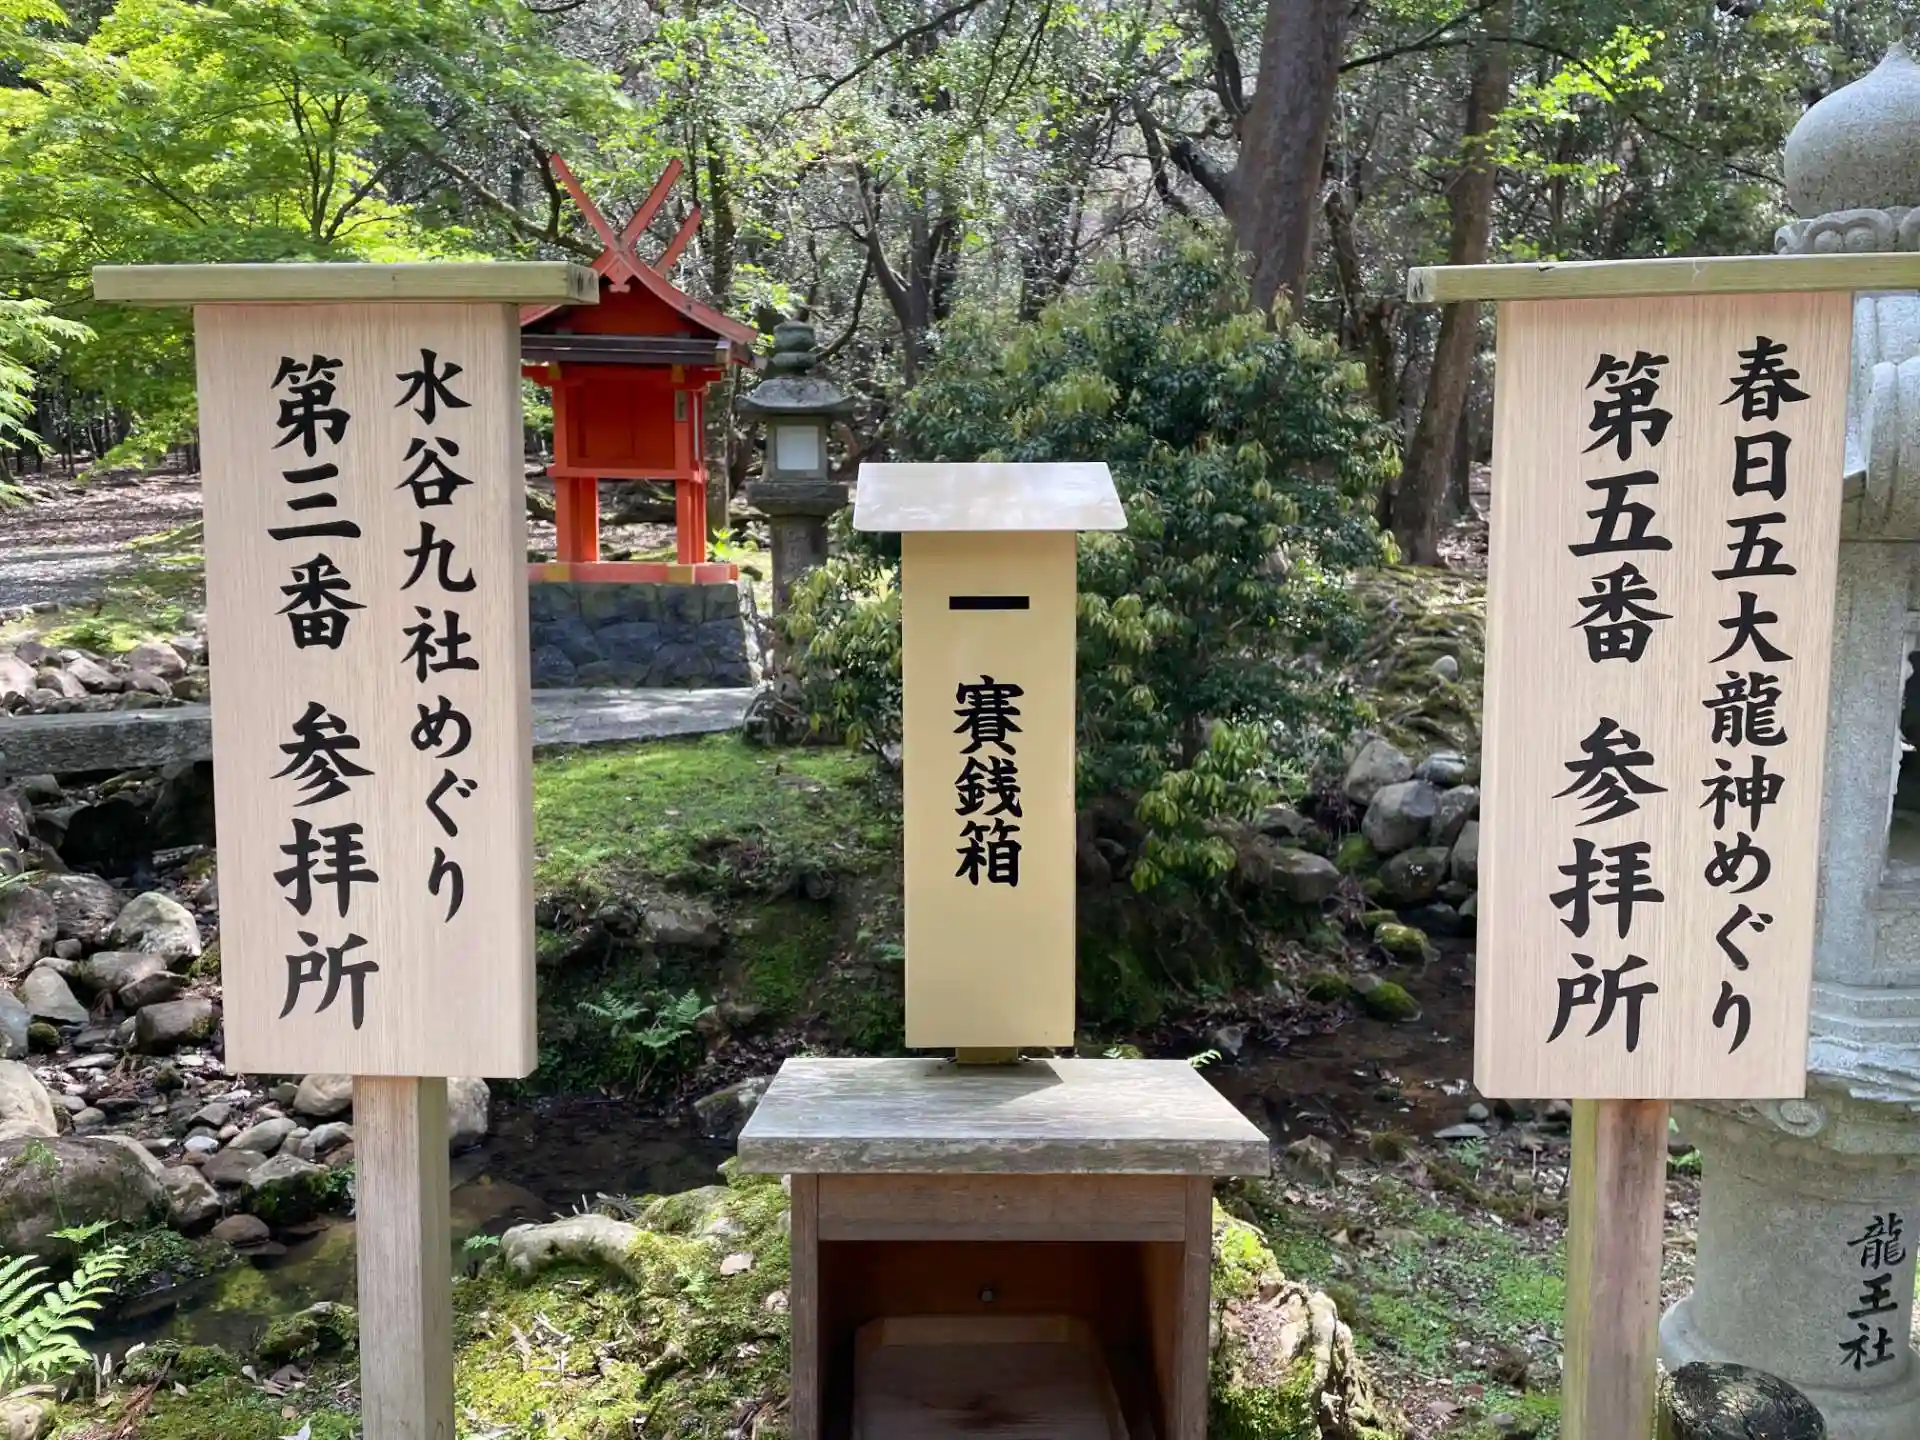 春日五大龍神めぐり
第五番 参拝所
賽銭箱
水谷九社めぐり
第三番 参拝所
龍王社